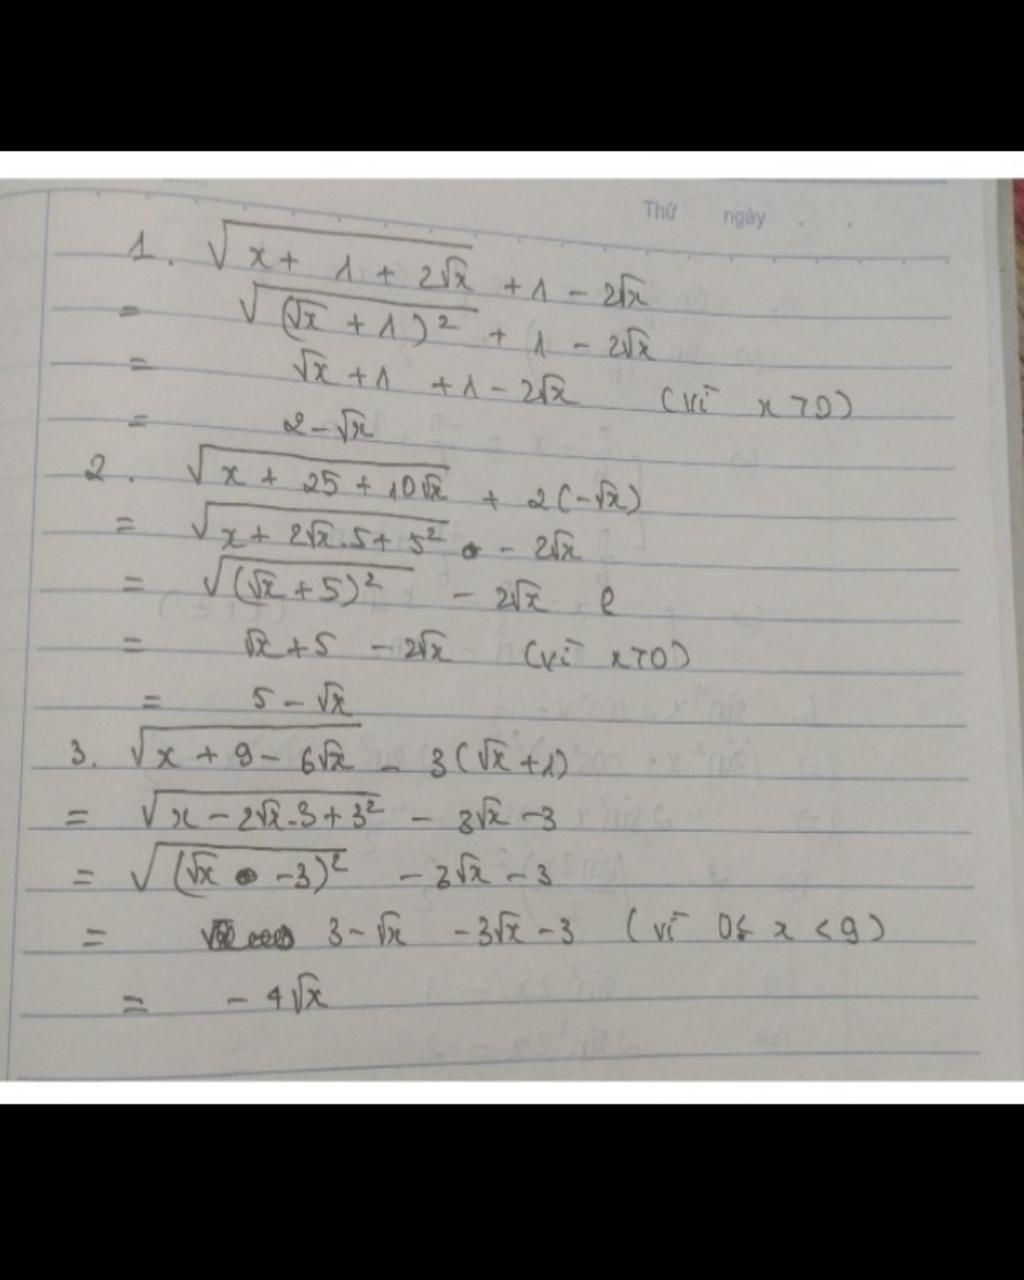 Thứ ngày
1. √(x + 1 + 2√x) + 1 - 2√x
= √((√x + 1)²) + 1 - 2√x
= √x + 1 + 1 - 2√x (vì x > 0)
= 2 - √x
2. √(x + 25 + 10√x) + 2(-√x)
= √(x + 2√x.5 + 5²) - 2√x
= √((√x + 5)²) - 2√x
= √x + 5 - 2√x (vì x > 0)
= 5 - √x
3. √(x + 9 - 6√x) - 3(√x + 1)
= √(x - 2√x.3 + 3²) - 3√x - 3
= √((√x - 3)²) - 3√x - 3
= 3 - √x - 3√x - 3 (vì 0 ≤ x < 9)
= - 4√x